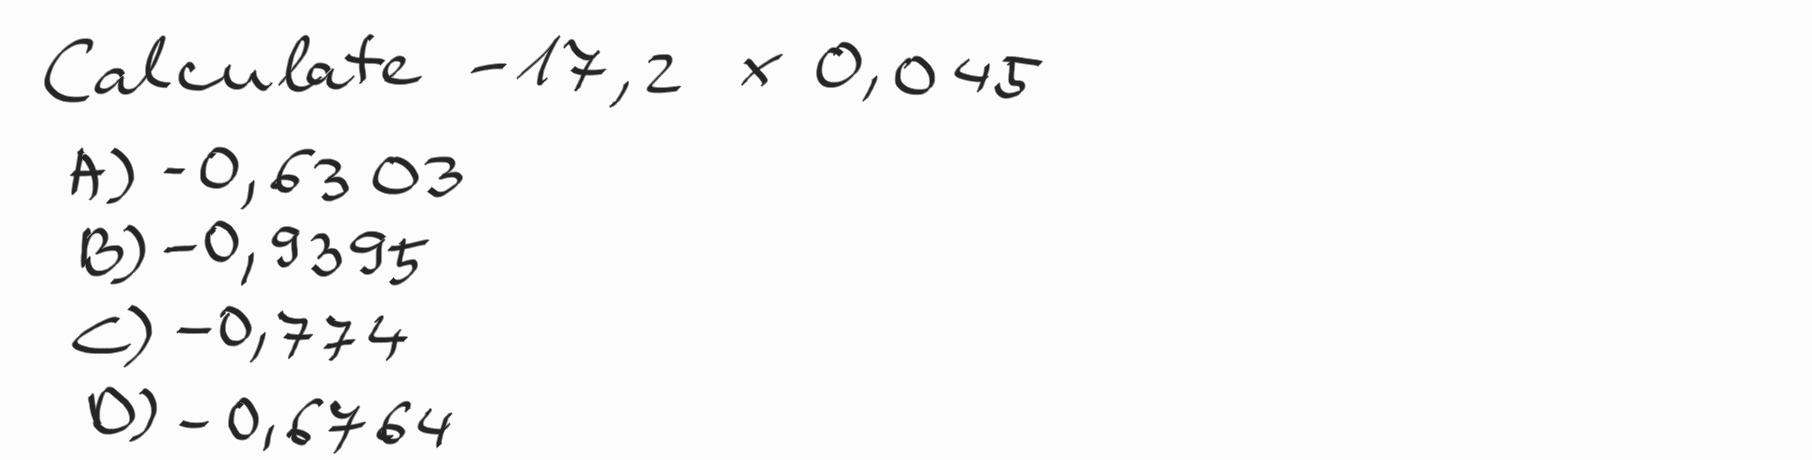 Calculate -17,2 × 0,045
A) -0,6303
B) -0,9395
C) -0,774
D) -0,6764